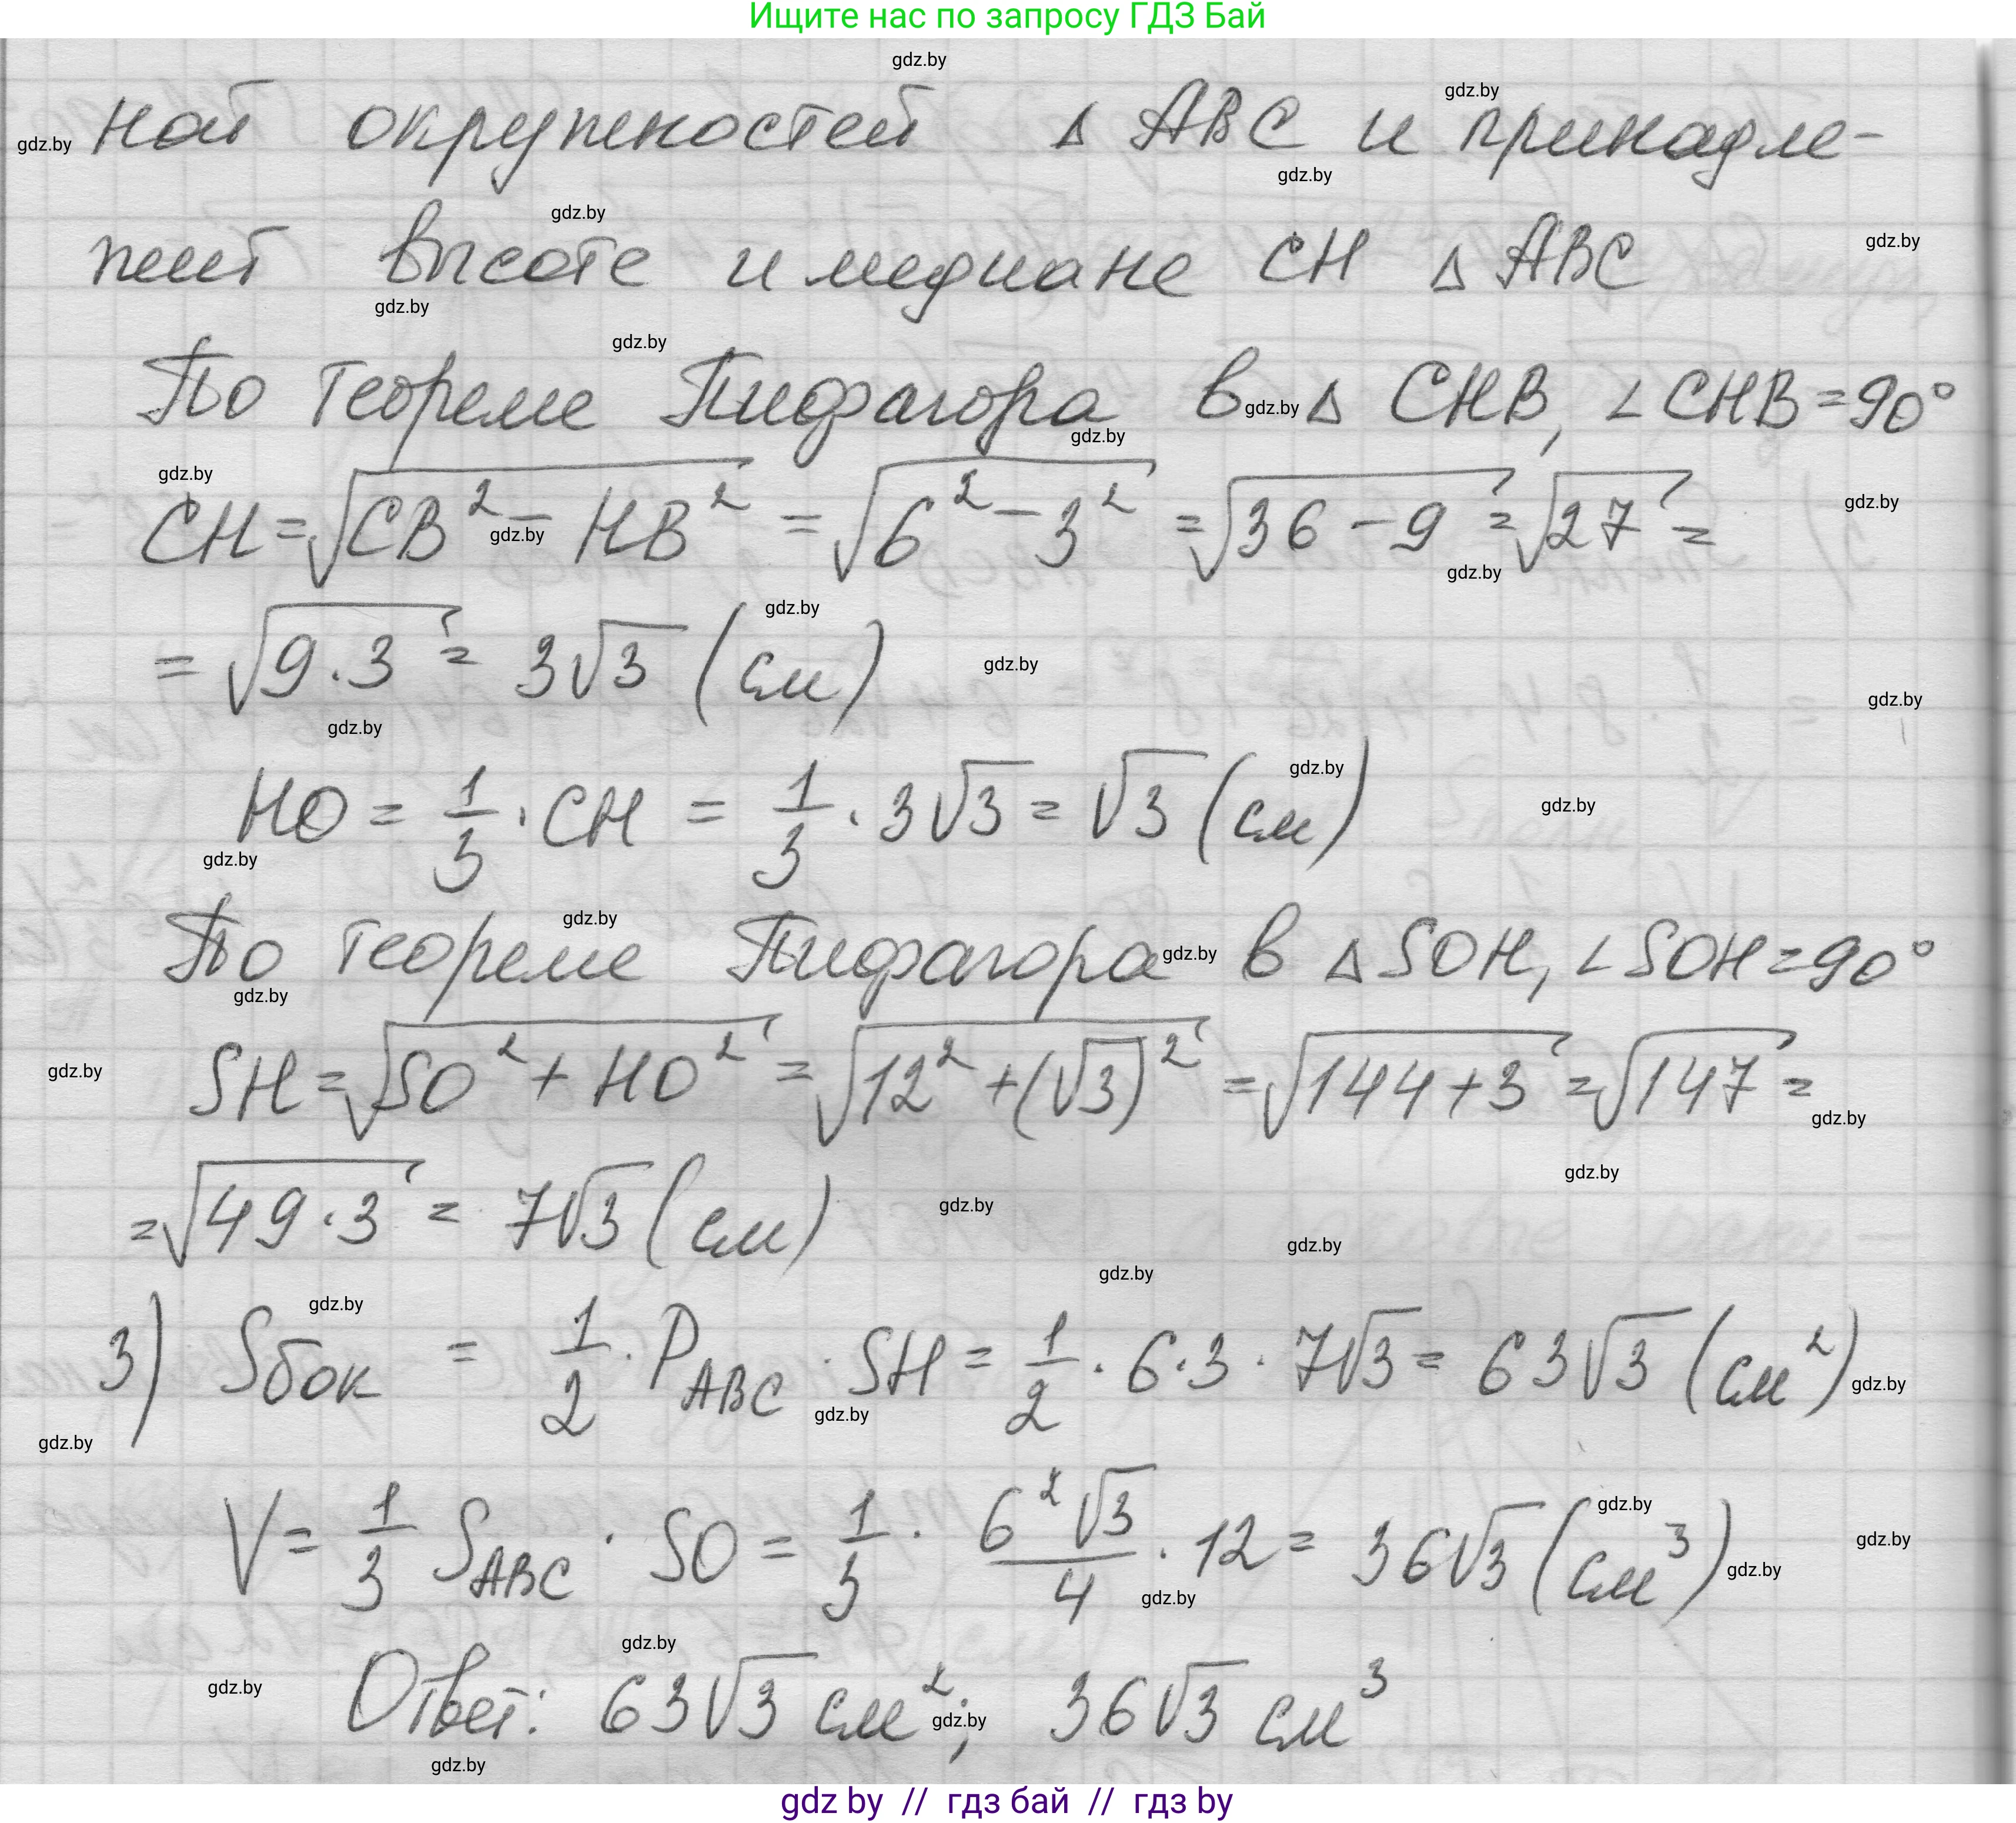 Ищите нас по запросу ГДЗ Бай
ной окружностей △ ABC и принадле-
жит высоте и медиане CH △ ABC
По теореме Пифагора в △ CHB, ∠CHB = 90°
CH = √(CB² − HB²) = √(6² − 3²) = √(36 − 9) = √27 =
= √(9 · 3) = 3√3 (см)
HO = 1/3 · CH = 1/3 · 3√3 = √3 (см)
По теореме Пифагора в △ SOH, ∠SOH = 90°
SH = √(SO² + HO²) = √(12² + (√3)²) = √(144 + 3) = √147 =
= √(49 · 3) = 7√3 (см)
3) Sбок = 1/2 · P_ABC · SH = 1/2 · 6 · 3 · 7√3 = 63√3 (см²)
V = 1/3 S_ABC · SO = 1/3 · 6²√3/4 · 12 = 36√3 (см³)
Ответ: 63√3 см²; 36√3 см³
gdz by // гдз бай // гдз by